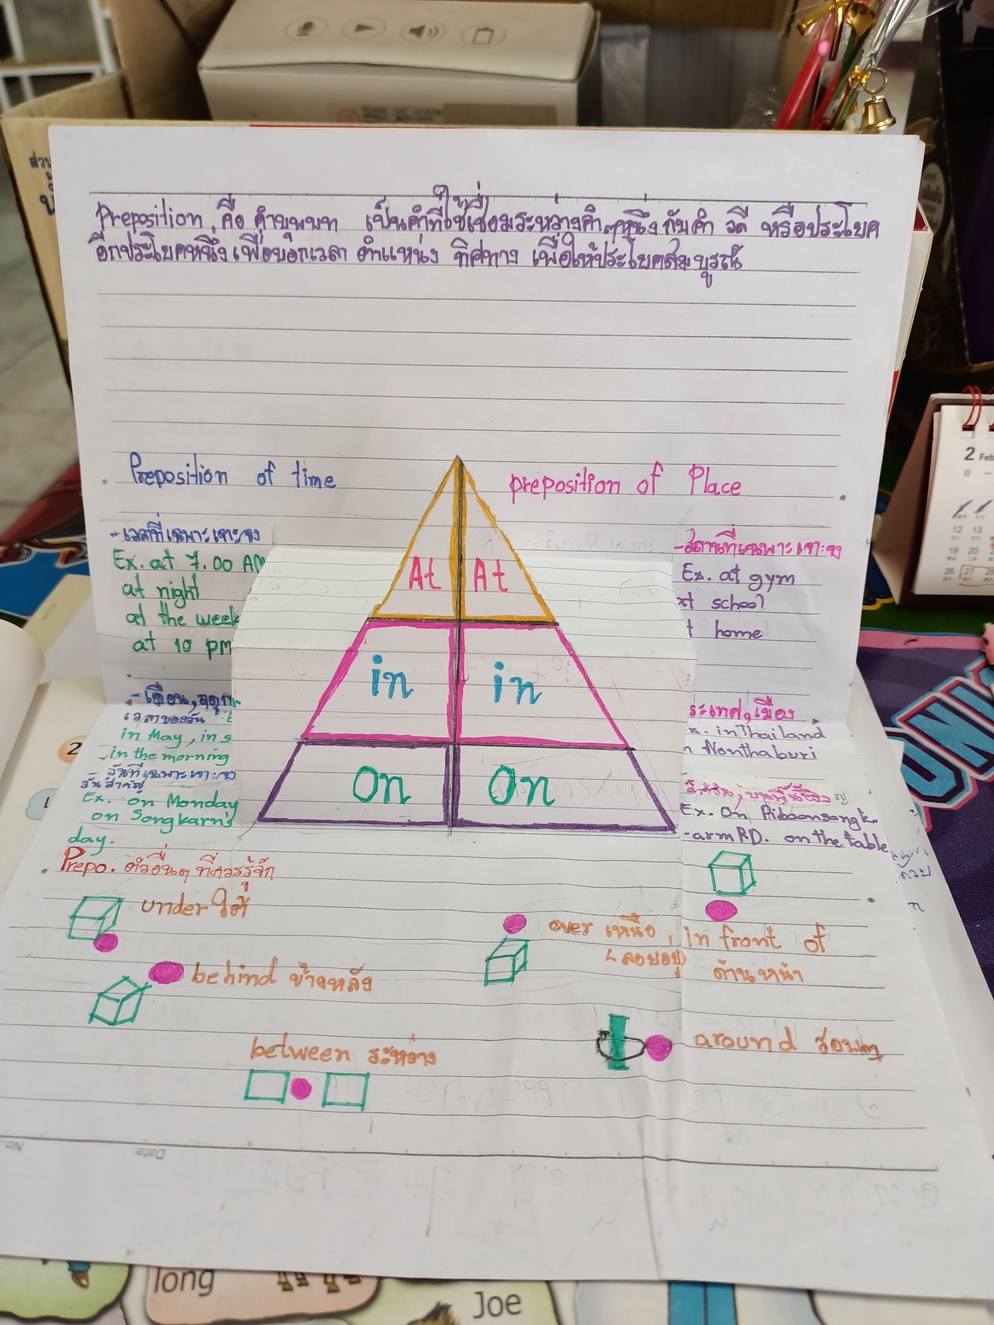 Preposition คือ คำบุพบท เป็นคำที่ใช้เชื่อมระหว่างคำๆหนึ่งกับคำ วลี หรือประโยค
อีกประโยคหนึ่ง เพื่อบอกเวลา ตำแหน่ง ทิศทาง เพื่อให้ประโยคสมบูรณ์
Preposition of time
preposition of Place
- เวลาที่เฉพาะเจาะจง
Ex. at 7.00 AM
at night
at the week
at 10 pm
- สถานที่เฉพาะเจาะจง
Ex. at gym
at school
t home
At At
in in
On On
- เดือน, ฤดู
เวลาของวัน
in May, in s
in the morning
วันที่เฉพาะเจาะจง
วันสำคัญ
Ex. on Monday
on Songkarn's
day.
ระเทศ, เมือง
x. in Thailand
n Nonthaburi
Ex. On Piboonsongk
-arm RD. on the table
Prepo. ตัวอื่นๆ ที่ควรรู้จัก
under ใต้
over เหนือ
(ลอยอยู่)
in front of
ด้านหน้า
behind ข้างหลัง
between ระหว่าง
around รอบๆ
No.
Date:
2 Feb
12 13
19 20
26 27
2
long
Joe